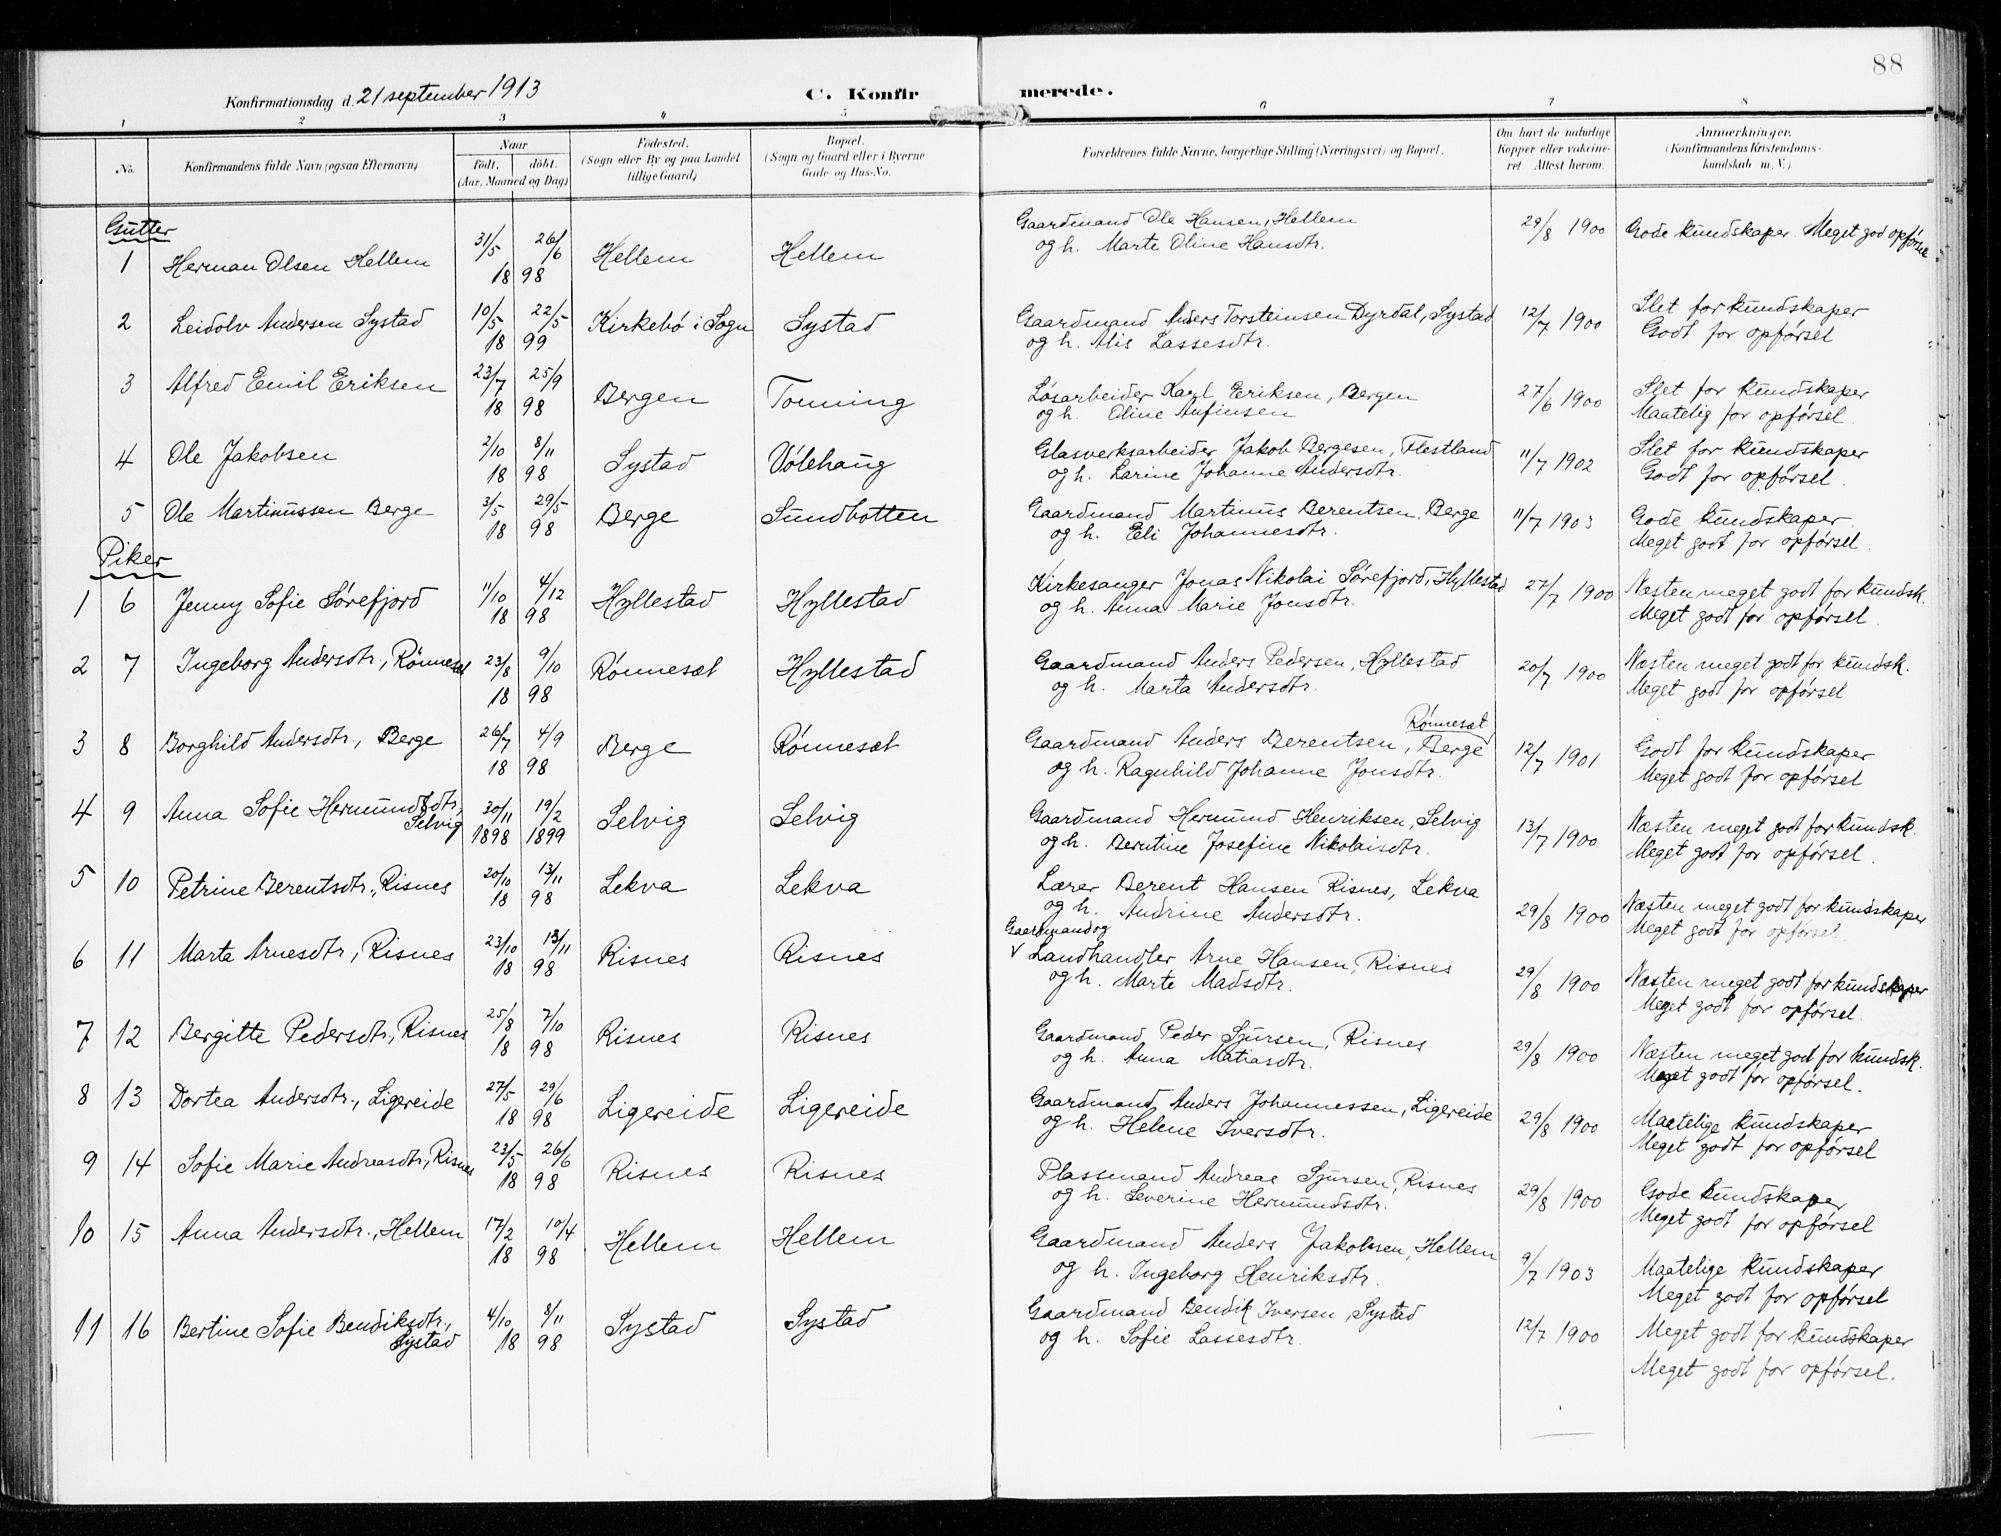 88
Konfirmationsdag d. 21 september 1913
C. Konfirmerede.
1 2 3 4 5 6 7 8
No.
Konfirmandens fulde Navn (ogsaa Efternavn)
Naar
Födt. döbt.
(Aar, Maaned og Dag)
Födested.
(Sogn eller By og paa Landet
tillige Gaard)
Bopæl.
(Sogn og Gaard eller i Byerne
Gade og Hus-No.
Forældrenes fulde Navne, borgerlige Stilling (Næringsvei) og Bopæl.
Om havt de naturlige
Kopper eller vaccine-
ret. Attest herom.
Anmerkninger.
(Konfirmandens Kristendoms-
kundskab m. V.)
Gutter
1 Herman Olsen Hellem 31/5 26/6 1898 Hellem Hellem
Gaardmand Ole Hansen, Hellem
og h. Marte Oline Hansdtr.
29/8 1900
Gode kundskaper. Meget god opførsel
2 Leidolv Andersen Systad 10/5 22/5 1899 Kirkebö i Sogn Systad
Gaardmand Anders Torsteinsen Dyrdal, Systad
og h. Alis Lassesdtr.
12/7 1900
Slet for kundskaper
Godt for opførsel
3 Alfred Emil Eriksen 23/7 25/9 1898 Bergen Tonning
Løsarbeider Karl Eriksen, Bergen
og h. Oline Anfinsen
27/6 1900
Slet for kundskaper
Maatelig for opførsel
4 Ole Jakobsen 2/10 8/11 1898 Systad Vólehaug
Glasverksarbeider Jakob Bergesen, Flestland
og h. Larine Johanne Andersdtr.
11/7 1902
Slet for kundskaper
Godt for opførsel
5 Ole Martinussen Berge 3/5 29/5 1898 Berge Sundbotten
Gaardmand Martinus Berentsen, Berge
og h. Eli Johannesdtr.
11/7 1903
Gode kundskaper
Meget godt for opførsel
Piker
1 6 Jenny Sofie Sørefjord 11/10 4/12 1898 Hyllestad Hyllestad
Kirkesanger Jonas Nikolai Sørefjord, Hyllestad
og h. Anna Marie Jonsdtr.
27/7 1900
Næsten meget godt for kundsk.
Meget godt for opførsel
2 7 Ingeborg Andersdtr., Rønneset 23/8 9/10 1898 Rønneset Hyllestad
Gaardmand Anders Pedersen, Hyllestad
og h. Marta Andersdtr.
20/7 1900
Næsten meget godt for kundsk.
Meget godt for opførsel
3 8 Borghild Andersdtr., Berge 26/7 4/9 1898 Berge Rønneset
Rønneset
Gaardmand Anders Berentsen, Berge
og h. Ragnhild Johanne Jonsdtr.
12/7 1901
Godt for kundskaper
Meget godt for opførsel
4 9 Anna Sofie Hermundsdtr., Selvig 30/11 1898 19/2 1899 Selvig Selvig
Gaardmand Hermund Henriksen, Selvig
og h. Berntine Josefine Nikolaisdtr.
13/7 1900
Næsten meget godt for kundsk.
Meget godt for opførsel
5 10 Petrine Berentsdtr., Risnes 20/10 13/11 1898 Lekva Lekva
Lærer Berent Hansen Risnes, Lekva
og h. Andrine Andersdtr.
29/8 1900
Næsten meget godt for kundskaper
Meget godt for opførsel
6 11 Marta Arnesdtr., Risnes 23/10 13/11 1898 Risnes Risnes
Gaardmand og
V Landhandler Arne Hansen, Risnes
og h. Marte Madsdtr.
29/8 1900
Næsten meget godt for kundskaper
Meget godt for opførsel.
7 12 Bergitte Pedersdtr., Risnes 25/8 7/10 1898 Risnes Risnes
Gaardmand Peder Sjursen, Risnes
og h. Anna Matiasdtr.
29/8 1900
Næsten meget god for kundsk.
Meget godt for opførsel.
8 13 Dortea Andersdtr., Ligereide 27/5 29/6 1898 Ligereide Ligereide
Gaardmand Anders Johannessen, Ligereide
og h. Helene Iversdtr.
29/8 1900
Maatelige kundskaper
Meget godt for opførsel
9 14 Sofie Marie Andreasdtr., Risnes 23/5 26/6 1898 Risnes Risnes
Plassmand Andreas Sjursen, Risnes
og h. Severine Hermundsdtr.
29/8 1900
Gode kundskaper
Meget godt for opførsel
10 15 Anna Andersdtr., Hellem 17/2 10/4 1898 Hellem Hellem
Gaardmand Anders Jakobsen, Hellem
og h. Ingeborg Henriksdtr.
9/7 1903
Maatelige kundskaper
Meget godt for opførsel
11 16 Bertine Sofie Bendiksdtr., Systad 4/10 8/11 1898 Systad Systad
Gaardmand Bendik Iversen, Systad
og h. Sofie Lassesdtr.
12/7 1900
Meget godt for kundskaper
Meget godt for opførsel.